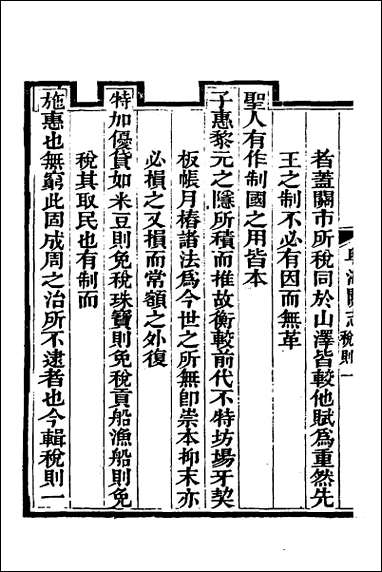 粤海關志稅則一
者蓋關市所稅同於山澤皆較他賦爲重然先
王之制不必有因而無革
聖人有作制國之用皆本
子惠黎元之隱所積而推故衡較前代不特坊場牙契
板帳月樁諸法爲今世之所無卽崇本抑末亦
必損之又損而常額之外復
特加優貸如米豆則免稅珠寶則免稅貢船漁船則免
稅其取民也有制而
施惠也無窮此固成周之治所不逮者也今輯稅則一